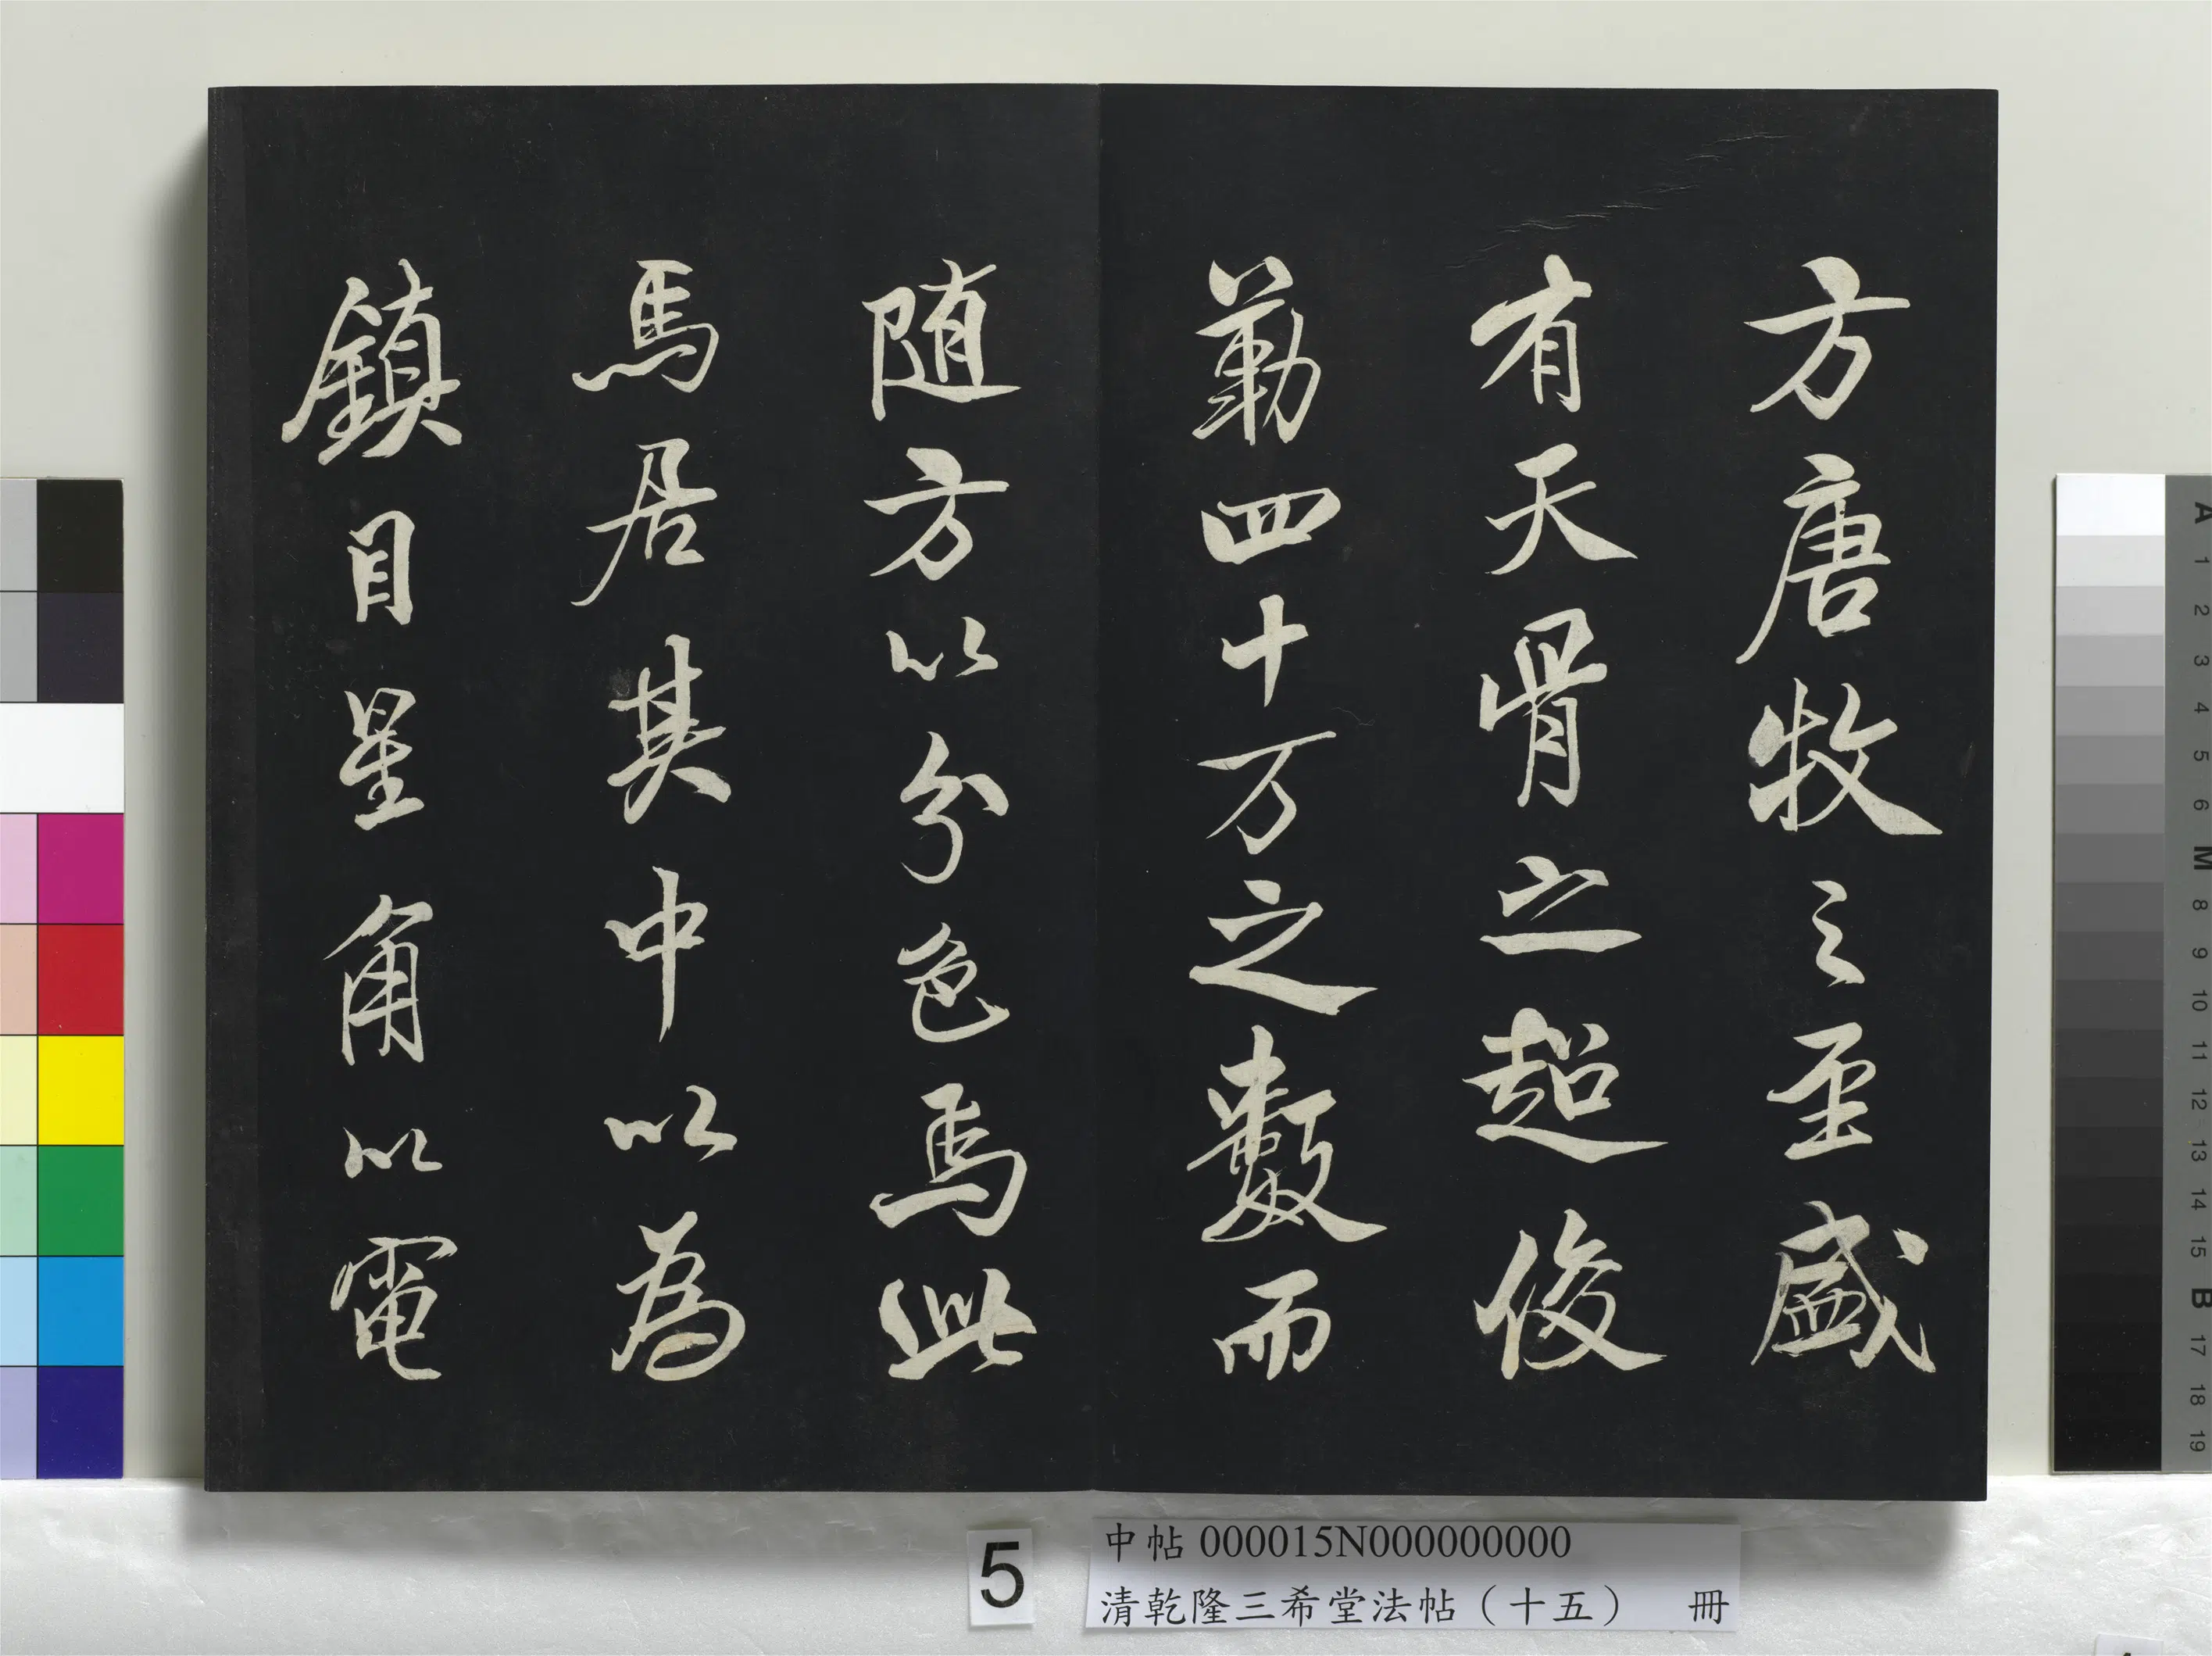 方唐牧之至盛
有天骨之超俊
勒四十万之數而
随方以分色焉此
馬居其中以為
鎮目星角以電
5
中帖 000015N000000000
清乾隆三希堂法帖（十五） 冊
A 1 2 3 4 5 6 M 8 9 10 11 12 13 14 15 B 17 18 19